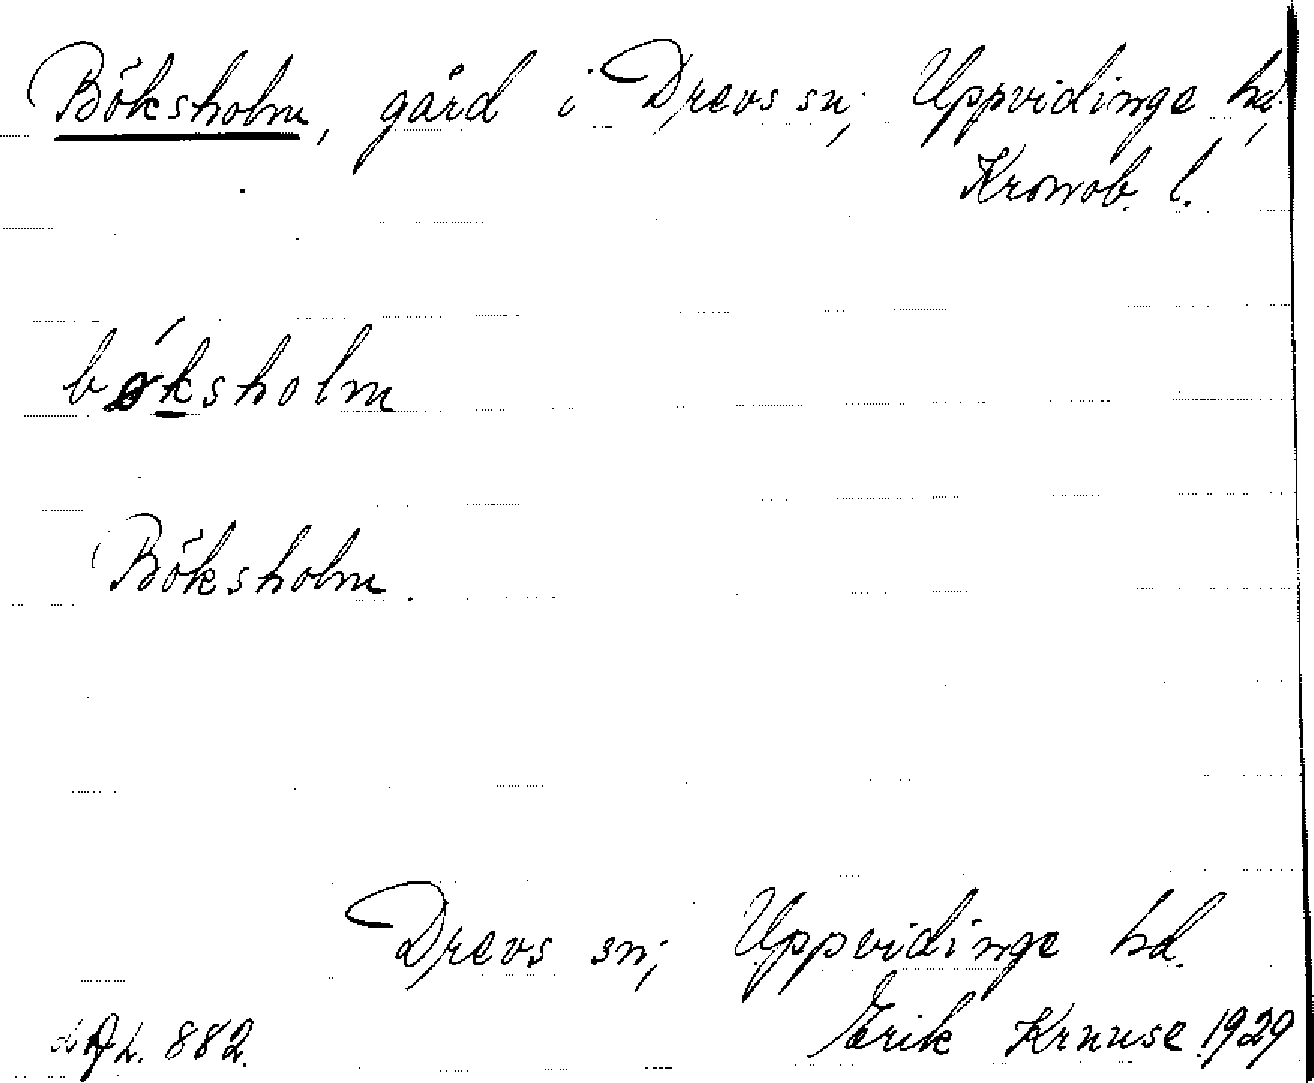 Böksholm, gård i Drevs sn, Uppvidinge hd,
Kronob. l.
bøksholm
Böksholm.
Drevs sn; Uppvidinge hd.
882. Erik Kruuse 1929